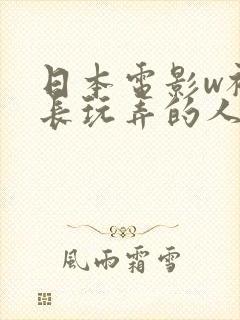 日本电影w被
长玩弄的人
風雨霜雪